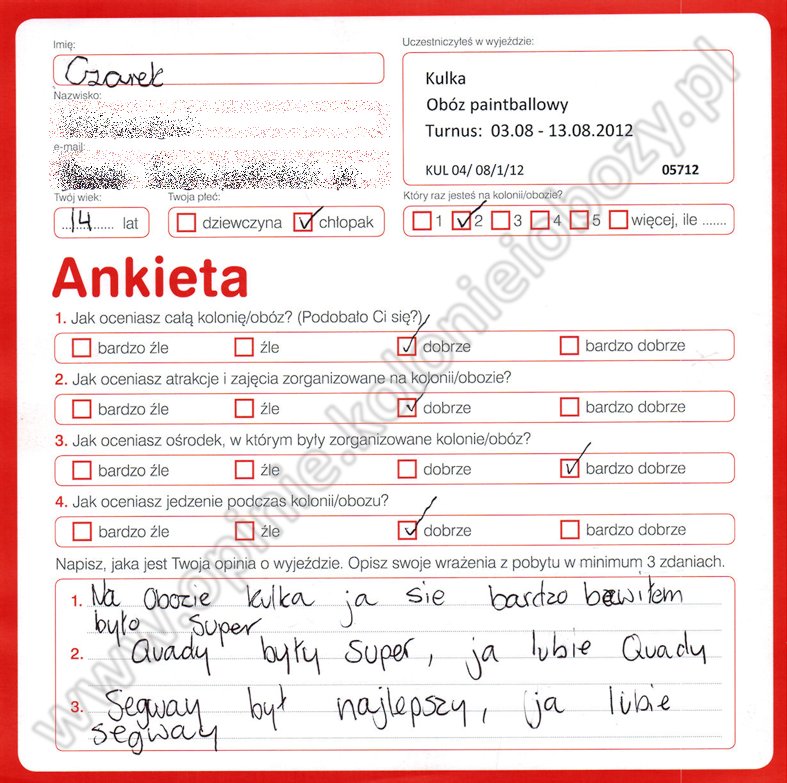 Imię:
Czarek
Nazwisko:
e-mail:
Twój wiek:
14 lat
Twoja płeć:
dziewczyna chłopak
Uczestniczyłeś w wyjeździe:
Kulka
Obóz paintballowy
Turnus: 03.08 - 13.08.2012
KUL 04/ 08/1/12 05712
Który raz jesteś na kolonii/obozie?
1 2 3 4 5 więcej, ile .......
Ankieta
1. Jak oceniasz całą kolonię/obóz? (Podobało Ci się?)
bardzo źle źle dobrze bardzo dobrze
2. Jak oceniasz atrakcje i zajęcia zorganizowane na kolonii/obozie?
bardzo źle źle dobrze bardzo dobrze
3. Jak oceniasz ośrodek, w którym były zorganizowane kolonie/obóz?
bardzo źle źle dobrze bardzo dobrze
4. Jak oceniasz jedzenie podczas kolonii/obozu?
bardzo źle źle dobrze bardzo dobrze
Napisz, jaka jest Twoja opinia o wyjeździe. Opisz swoje wrażenia z pobytu w minimum 3 zdaniach.
1. Na Obozie kulka ja sie bardzo bawiłem
było super
2. Quady były super, ja lubie Quady
3. Segway był najlepszy, ja lubie
segway
www.opinie.kolonieiobozy.pl